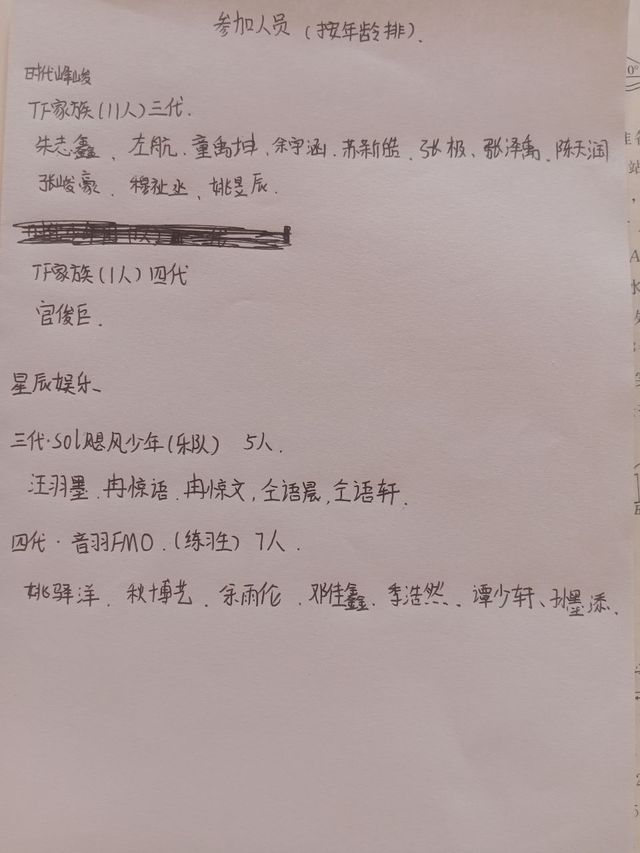 参加人员（按年龄排）.
时代峰峻
TF家族(11人)三代.
朱志鑫、左航.童禹坤.余宇涵.苏新皓.张极.张泽禹.陈天润
张峻豪.穆祉丞.姚昱辰.
TF家族(1人)四代
官俊臣.
星辰娱乐
三代·Sol飓风少年(乐队) 5人.
汪羽墨.冉惊语.冉惊文,仝语晨,仝语轩.
四代·音羽FMO.(练习生)7人.
姚驿洋.秋博艺.余雨伦.邓佳鑫.李浩然.谭少轩、孙墨添.